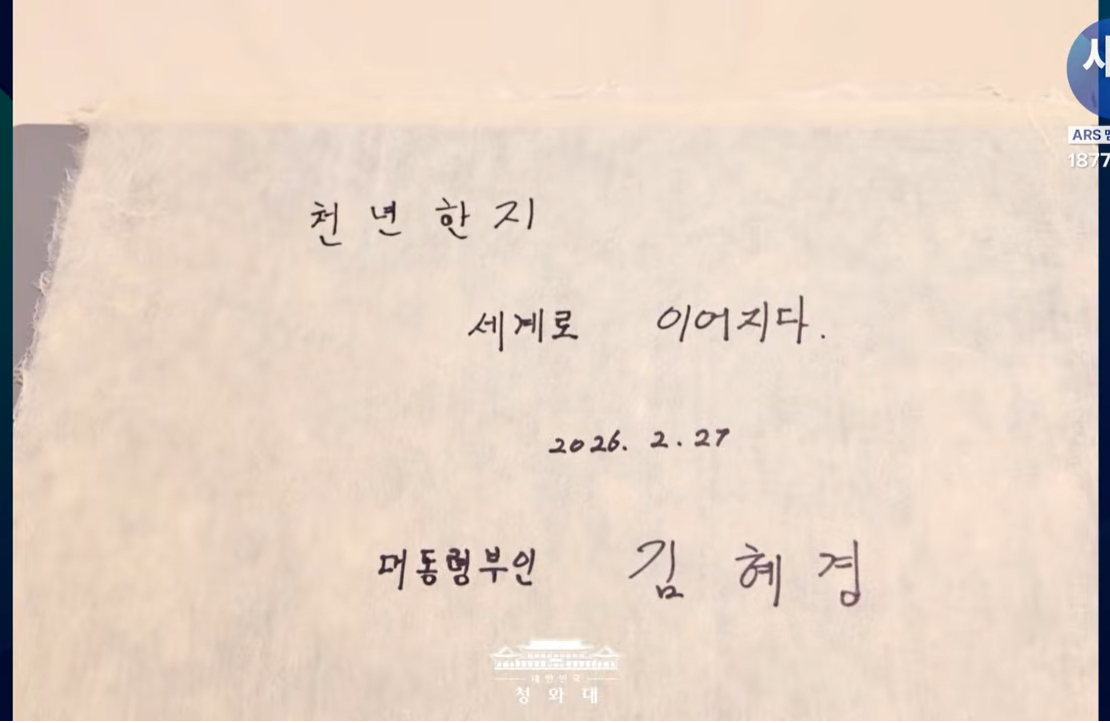 천년한지
세계로 이어지다.
2026. 2. 27
대통령부인 김혜경
대한민국
청와대
ARS
1877